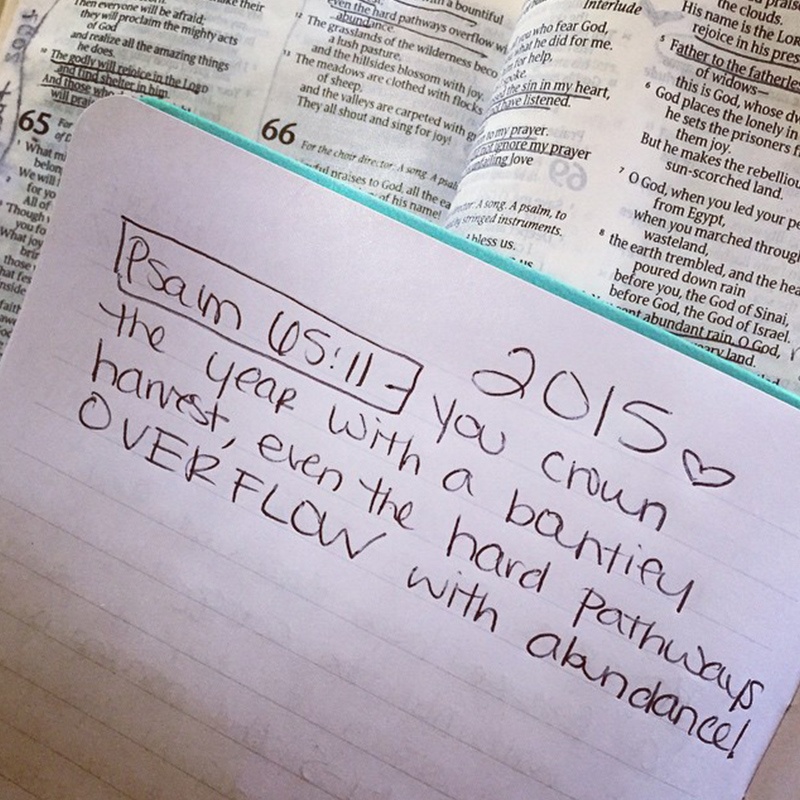 Then everyone will be afraid;
they will proclaim the mighty acts
of God
and realize all the amazing things
he does.
10 The godly will rejoice in the LORD
and find shelter in him.
And those who
will
65
For
What mi
belon
We will
for yo
All of
Though
you fo
What joy
brin
those
with a bountiful
even the hard pathways overflow wi
abundance.
12 The grasslands of the wilderness beco
a lush pasture,
and the hillsides blossom with joy.
13 The meadows are clothed with flocks
of sheep,
and the valleys are carpeted with g
They all shout and sing for joy!
66
For the choir director: A song. A psal
praises to God, all the ea
of his name!
Interlude
you who fear God,
what he did for me.
for help,
spoke.
the sin in my heart,
have listened.
to my prayer.
not ignore my prayer
unfailing love
A song. A psalm, to
by stringed instruments.
bless us.
us
69
the clouds.
His name is the LOR
rejoice in his pres
5 Father to the fatherles
of widows—
this is God, whose dw
6 God places the lonely in
he sets the prisoners f
them joy.
But he makes the rebelliou
sun-scorched land.
7 O God, when you led your pe
from Egypt,
when you marched through
wasteland,
8 the earth trembled, and the hea
poured down rain
before you, the God of Sinai,
before God, the God of Israel.
sent abundant rain, O God,
weary land.
2015
Psalm 65:11- you crown
the year with a bountify
harvest, even the hard pathways
OVERFLOW with abundance!